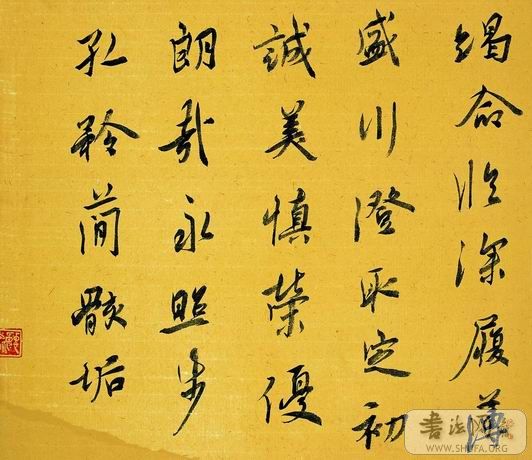 竭命临深履薄
盛川澄取定初
誠美慎榮優
朗哉永照步
孔矜簡骸垢
WWW.SHUFA.ORG